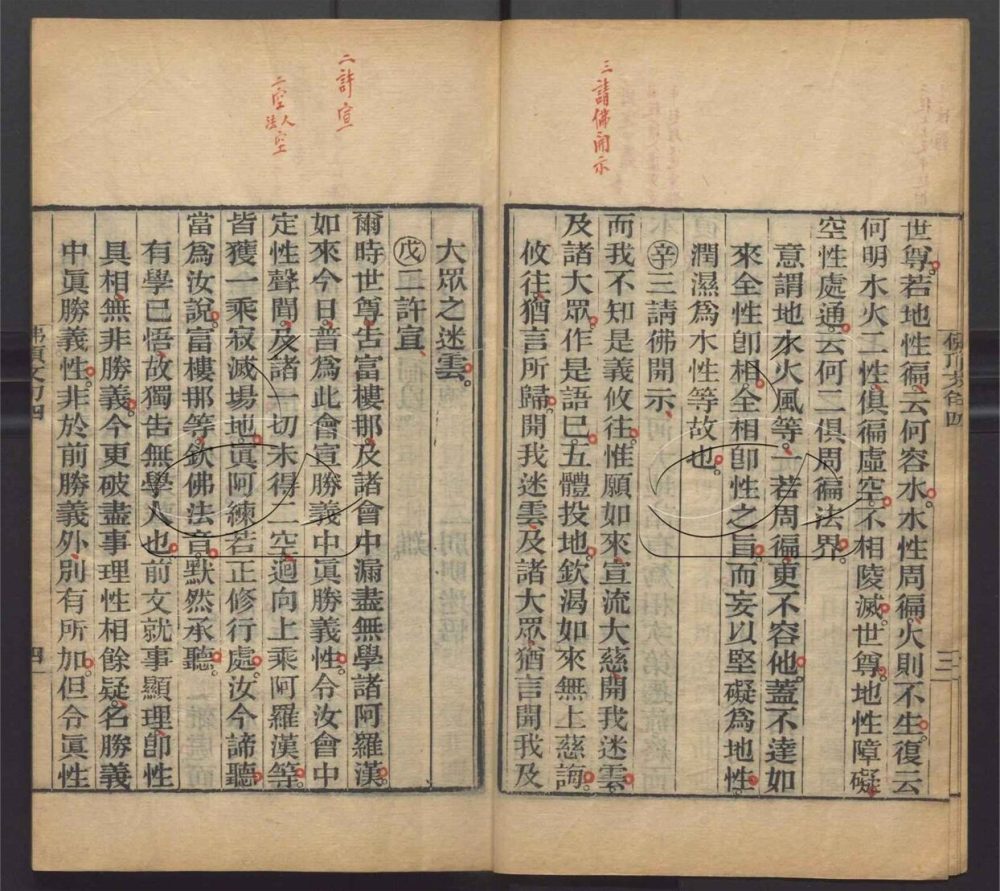 三請佛開示
世尊若地性徧云何容水水性周徧火則不生復云
何明水火二性俱徧虛空不相陵滅世尊地性障礙
空性虛通云何二俱周徧法界
意謂地水火風等一若周徧更不容他蓋不達如
來全性卽相全相卽性之旨而妄以堅礙為地性
潤濕為水性等故也
辛三請佛開示
而我不知是義攸往惟願如來宣流大慈開我迷雲
及諸大眾作是語已五體投地欽渴如來無上慈誨
攸往猶言所歸開我迷雲及諸大眾猶言開我及
三
二許宣
二空人空
法
大眾之迷雲
戊二許宣
爾時世尊告富樓那及諸會中漏盡無學諸阿羅漢
如來今日普為此會宣勝義中眞勝義性令汝會中
定性聲聞及諸一切未得二空迴向上乘阿羅漢等
皆獲一乘寂滅場地眞阿練若正修行處汝今諦聽
當為汝說富樓那等欽佛法音默然承聽
有學已悟故獨告無學人也前文就事顯理卽性
具相無非勝義今更破盡事理性相餘疑名勝義
中眞勝義性非於前勝義外別有所加但令眞性
四